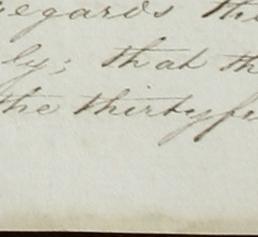 regards the
ly; that th
the thirtyfir